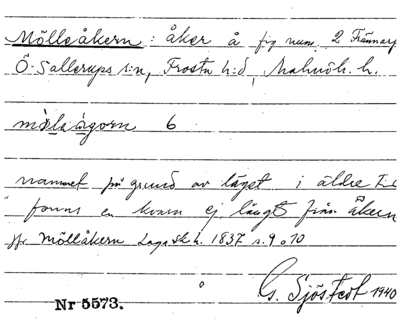 Mölleåkern: åker å fig num. 2 Trännarp
Ö. Sallerups s:n, Frosta h:d, Malmöh. l.
6
namnet på grund av läget i äldre tid
fanns en kvarn ej långt från åkern
jfr Möllåkern Laga sk. h. 1837 s. 9 o 10
G. Sjöstedt 1940
Nr 5573.